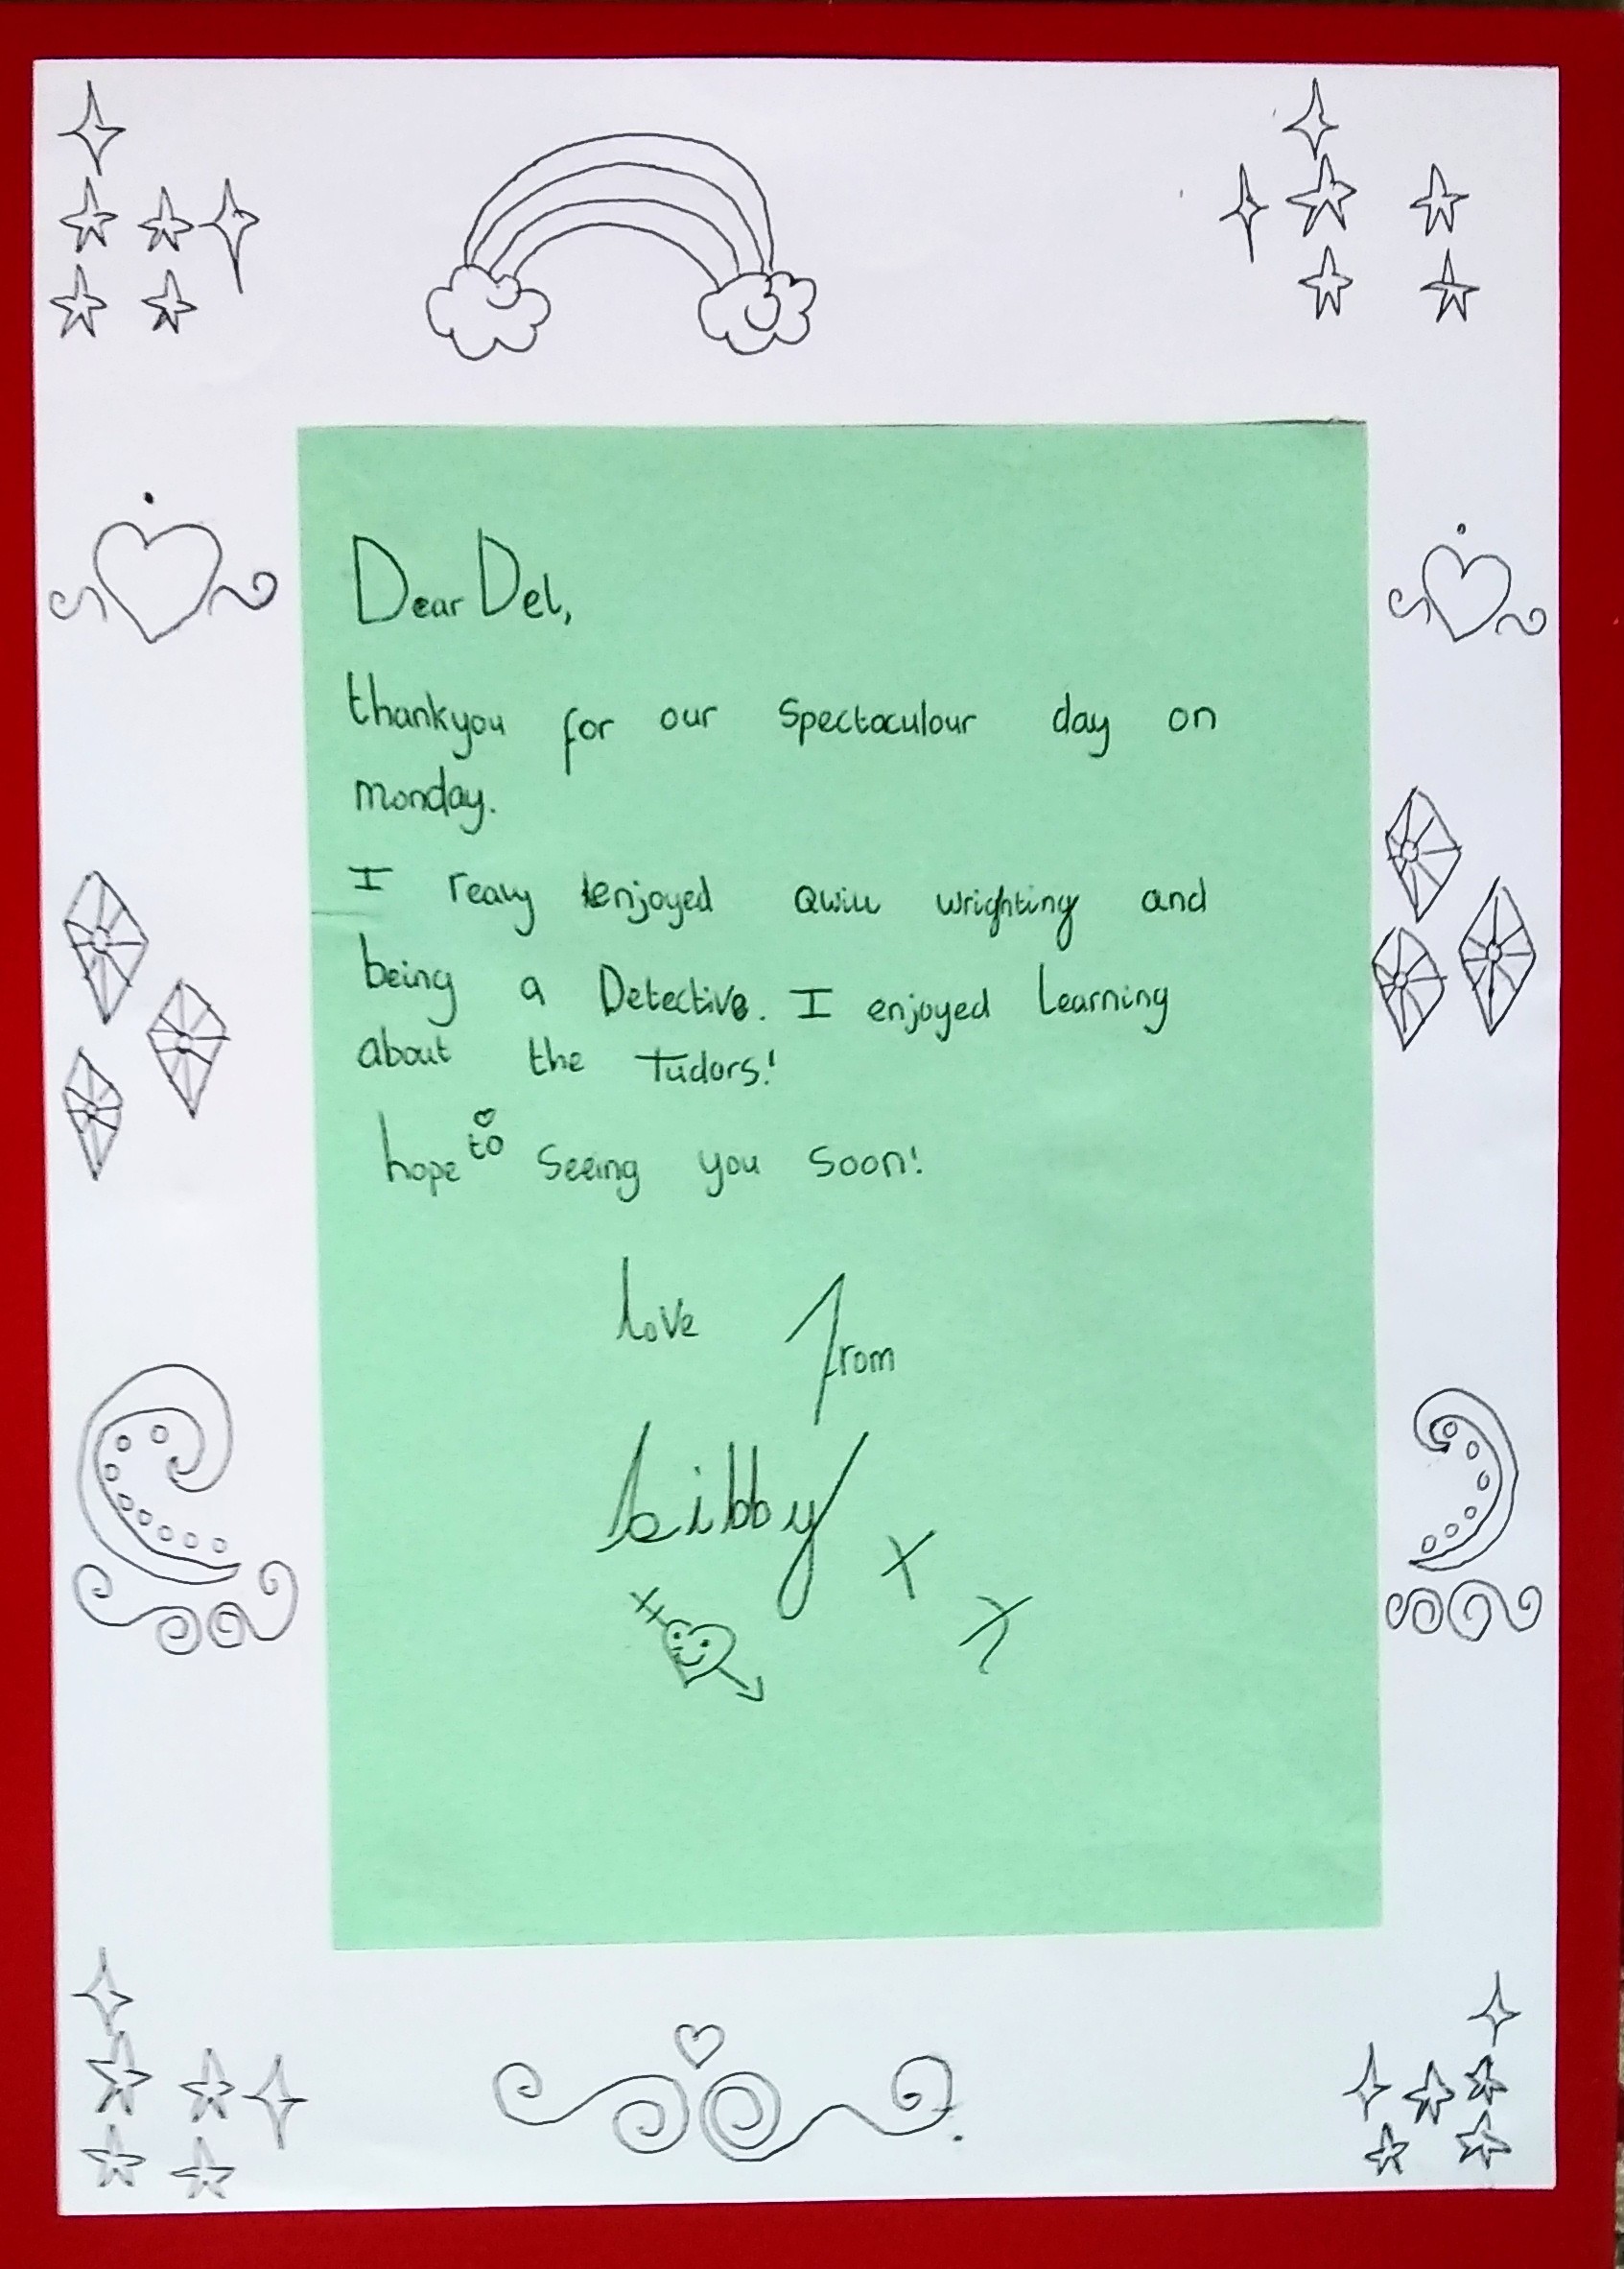 Dear Del,
thankyou for our Spectaculour day on
monday.
I realy enjoyed Qwill wrighting and
being a Detective. I enjoyed Learning
about the Tudors!
hope to seeing you soon!
love from
Libby x
x